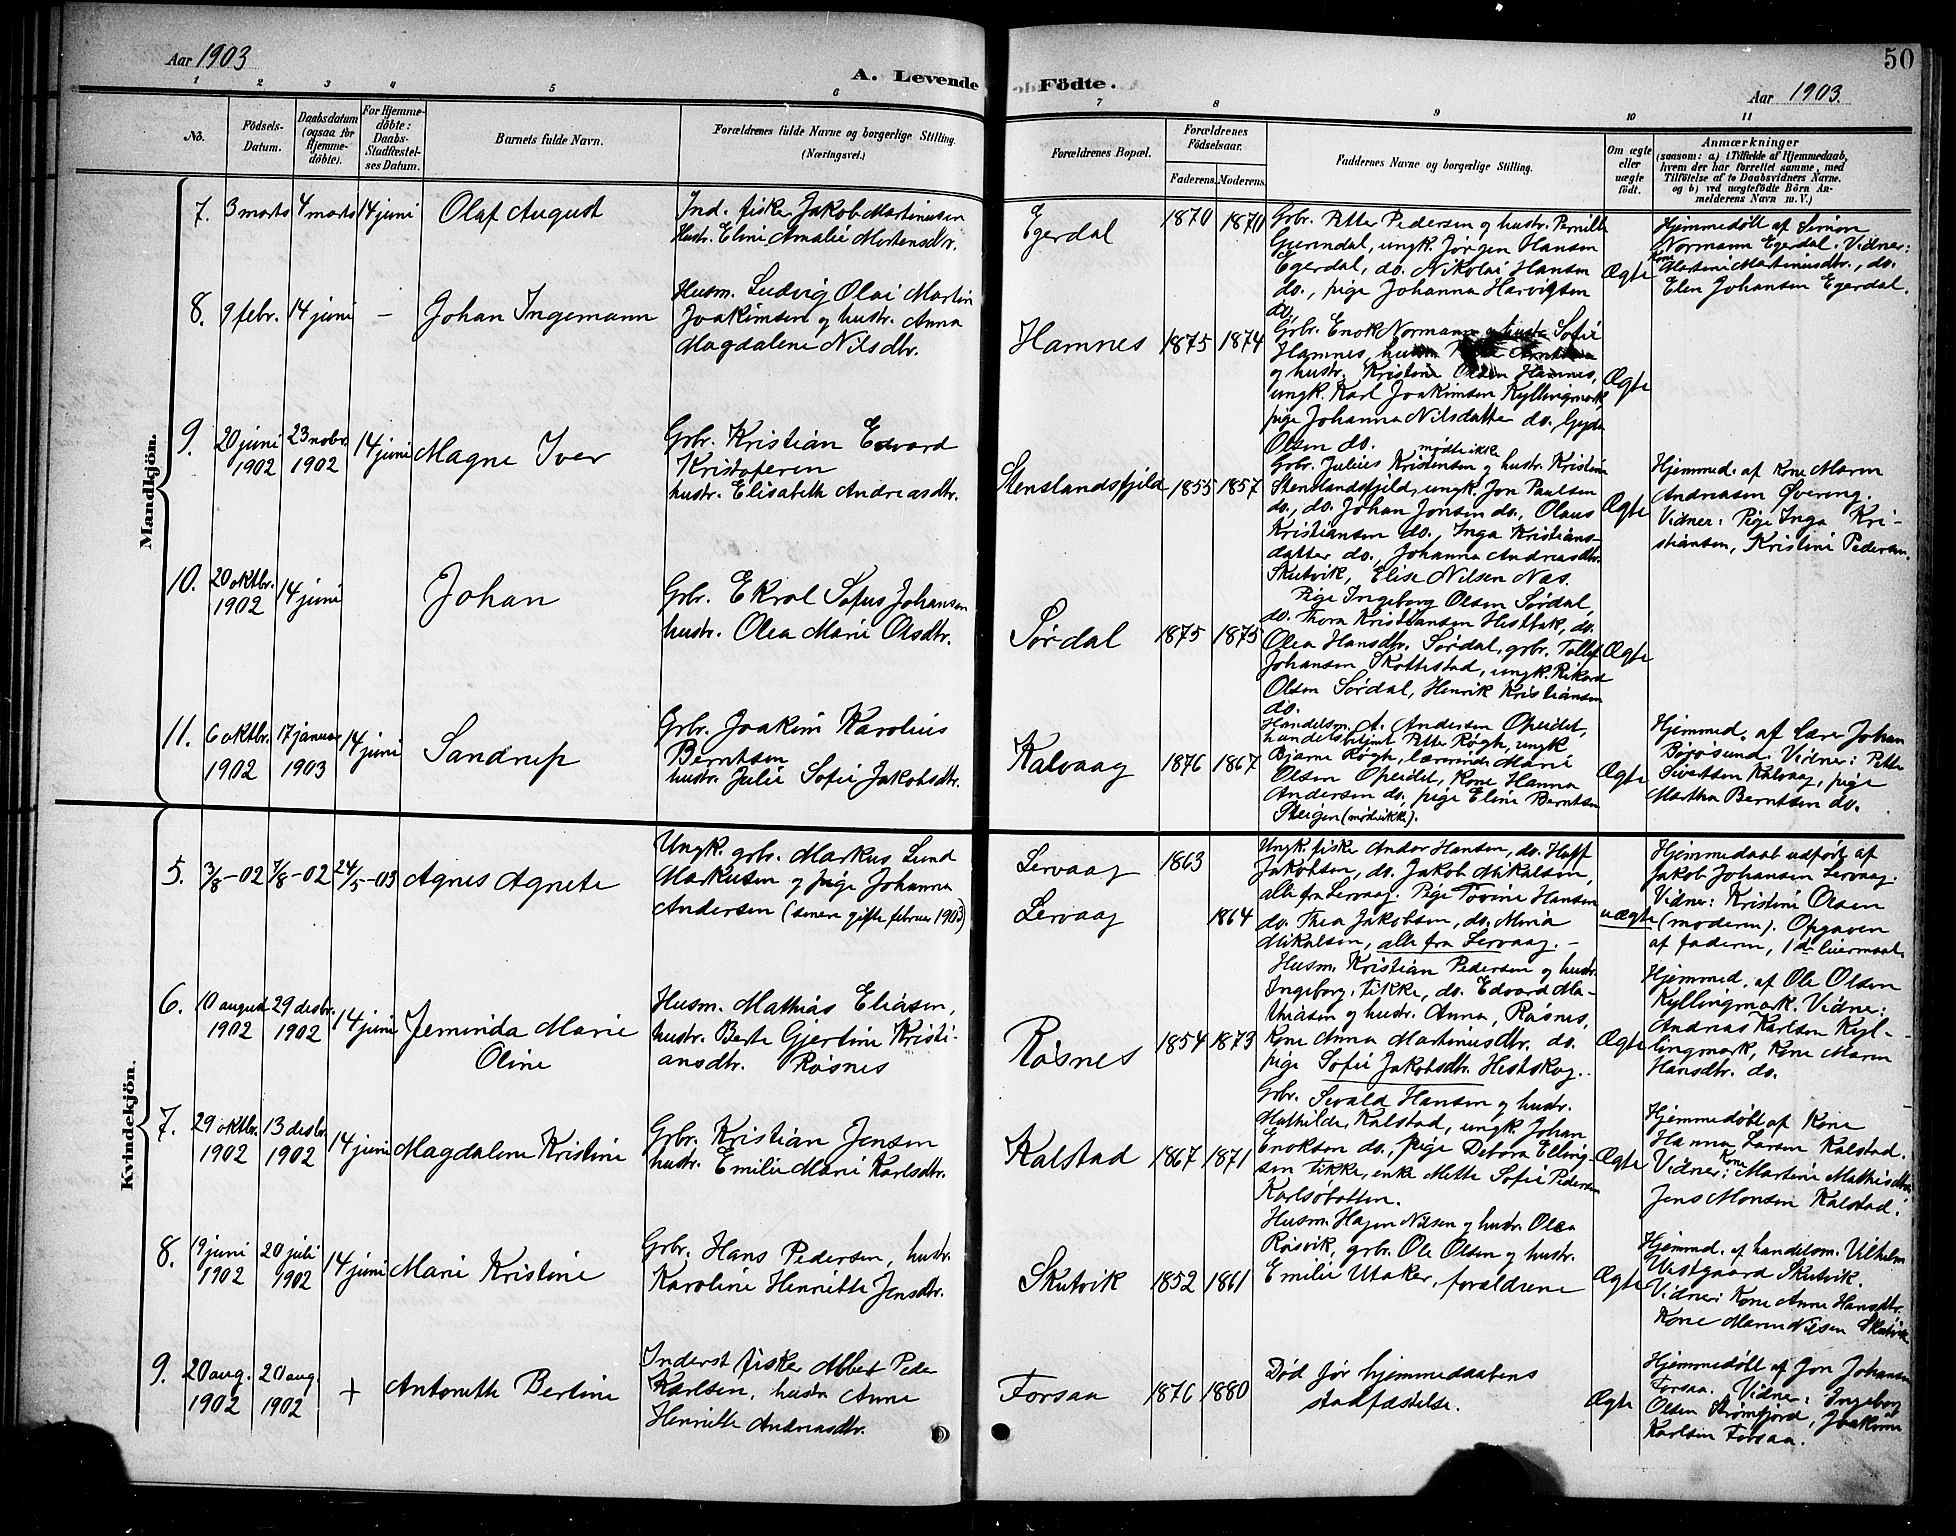 50
Aar 1903
A. Levende Födte.
Aar 1903.
1 2 3 4 5 6 7 8 9 10 11
No.
Födsels-
Datum.
Daabsdatum
(ogsaa for
Hjemme-
döbte).
For Hjemme-
döbte:
Daabs-
Stadfæstel-
ses Datum.
Barnets fulde Navn.
Forældrenes fulde Navne og borgerlige Stilling.
(Næringsvei.)
Forældrenes Bopæl.
Forældrenes
Födselsaar.
Faderens. Moderens.
Faddernes Navne og borgerlige Stilling.
Om ægte
eller
uægte
födt.
Anmærkninger
(saasom: a) i Tilfælde af Hjemmedaab,
hvem der har forrettet samme, med
Tilföielse af to Daabsvidners Navne.
og b) ved uægtefödte Börn An-
melderens Navn m. V.)
Mandkjön.
7. 3 marts 4 marts 14 juni Olaf August
Ind. fisker Jakob Martinusen
Hustr. Eline Amalie Mortensdtr.
Egerdal 1870 1870
Grbr. Petter Pedersen og hustr. Pernille
Gjerindal, ungk. Jørgen Hansen
Egerdal, do. Nikolai Hansen
do., pige Johanna Harvigsen
do.
Ægte
Hjemmedøbt af Simon
Normann Egerdal. Vidner:
Kone Martine Martinusdtr., do.
Elen Johansen Egerdal.
8. 9 febr. 14 juni - Johan Ingemann
Husm. Ludvig Olai Martin
Joakimsen og hustr. Anna
Magdalene Nilsdtr.
Hamnes 1875 1874
Grbr. Enok Normann og hustr. Sofie
Hamnes, husm.
og hustr. Kristine Olsen Hamnes,
ungk. Karl Joakimsen Kyllingmark,
pige Johanna Nilsdatter do., Gyda
Olsen do. mødte ikke
Ægte
9. 20 juni 1902 23 nobr. 1902 14 juni Magne Iver
Grbr. Kristian Edvard
Kristofersen
hustr. Elisabeth Andreasdtr.
Stenslandsfjeld 1855 1857
Grbr. Julius Kristensen og hustr. Kristine
Stenslandsfjeld, ungk. Jon Paulsen
do., do. Johan Jonsen do., Olaus
Kristiansen do., Inga Kristians-
datter do., Johanna Andreasdtr.
Skutvik, Elise Nilsen Næs.
Ægte
Hjemmed. af Kone Maren
Andreasen Øvereng.
Vidner: Pige Inga Kri-
stiansen, Kristine Pedersen.
10. 20 oktbr. 1902 14 juni Johan
Grbr. Ekrol Sofus Johansen
hustr. Olea Marie Olsdtr.
Sørdal 1875 1875
Pige Ingeborg Olsen Sørdal,
do. Thora Kristiansen Hestbak, do.
Olea Hansdtr. Sørdal, grbr. Tollef
Johansen Skottestad, ungk. Rikard
Olsen Sørdal, Henrik Kristiansen
do.
Ægte
11. 6 oktbr. 1902 17 januar 1903 14 juni Sandrup
Grbr. Joakim Karolius
Berntsen
hustr. Julie Sofie Jakobsdtr.
Kalvaag 1876 1867
Handelsm. A. Andersen Opeidet,
handelsbetjent Petter Røgh, ungk.
Bjarne Røgh, lærerinde Marie
Olsen Opeidet, Kone Hanna
Andersen do., pige Eline Berntsen
Steigen (mød ikke).
Ægte
Hjemmed. af lærer Johan
Børøsund. Vidner: Petter
Sivertsen Kalvaag, pige
Martha Berntsen do.
Kvindekjön.
5. 3/8-02 7/8-02 24/5-03 Agnes Agnete
Ungk. grbr. Markus Lund
Markusen og pige Johanna
Andersen (senere gifte februar 1903)
Lervaag 1863
Lervaag 1864
Ungk. fisker Andor Hansen, do.
Jakobsen, do. Jakob Mikalsen,
alle fra Lervaag. Pige Tovine Hansen
do. Thea Jakobsen, do. Minia
Mikalsen, alle fra Lervaag. -
uægte
Hjemmedaab udført af
Jakob Johansen Lervaag.
Vidner: Kristine Olsen
(moderen). Opgaven
af faderen, 1ste leiermaal.
6. 10 august 1902 29 desbr. 1902 14 juni Jeminda Marie
Oline
Husm. Mathias Eliasen,
hustr. Berte Gjertine Kristi-
ansdtr. Røsnes
Røsnes 1854 1873
Husm. Kristian Pedersen og hustr.
Ingeborg, Likke, do. Edvard Ma-
thiasen og hustr. Anna, Røsnes,
Kone Anna Martinusdtr. do.
pige Sofie Jakobsdtr. Hestskog.
Ægte
Hjemmed. af Ole Olsen
Kyllingmark. Vidner:
Andreas Karlsen Kyl-
lingmark, Kone Maren
Hansdtr. do.
7. 29 oktbr. 1902 13 desbr. 1902 14 juni Magdalene Kristine
Grbr. Kristian Jensen
hustr. Emilie Marie Karlsdtr.
Kalstad 1867 1871
Grbr. Sivald Hansen og hustr.
Mathilde, Kalstad, ungk. Johan
Enoksen do., pige Debora Elling-
sen Likke, enke Mette Sofie Pedersen
Karlsøbotten.
Ægte
Hjemmedøbt af Kone
Hanna Larsen Kalstad.
Vidner: Kone Martine Mathisdtr.
Jens Monsen Kalstad.
8. 19 juni 1902 20 juli 1902 14 juni Marie Kristine
Grbr. Hans Pedersen, hustr.
Karoline Henriette Jensdtr.
Skutvik 1852 1861
Husm. Hagen Nilsen og hustr. Olea
Røsvik, grbr. Ole Olsen og hustr.
Emilie Utaker, forældrene
Ægte
Hjemmed. af handelsm. Vilhelm
Vestgaard Skutvik.
Vidner: Kone Anne Hansdtr.
Kone Maren Nilsen Skutvik
9. 20 aug. 1902 20 aug. 1902 + Antonette Bertine
Inderst fisker Albert Peder
Karlsen, hustr. Anne
Henriette Andreasdtr.
Forsaa 1876 1880
Død før hjemmedaabens
stadfæstelse.
Ægte
Hjemmedøbt af Jon Johansen
Forsaa. Vidner: Ingeborg
Olsen Strømfjord, Joakim
Karlsen Forsaa.